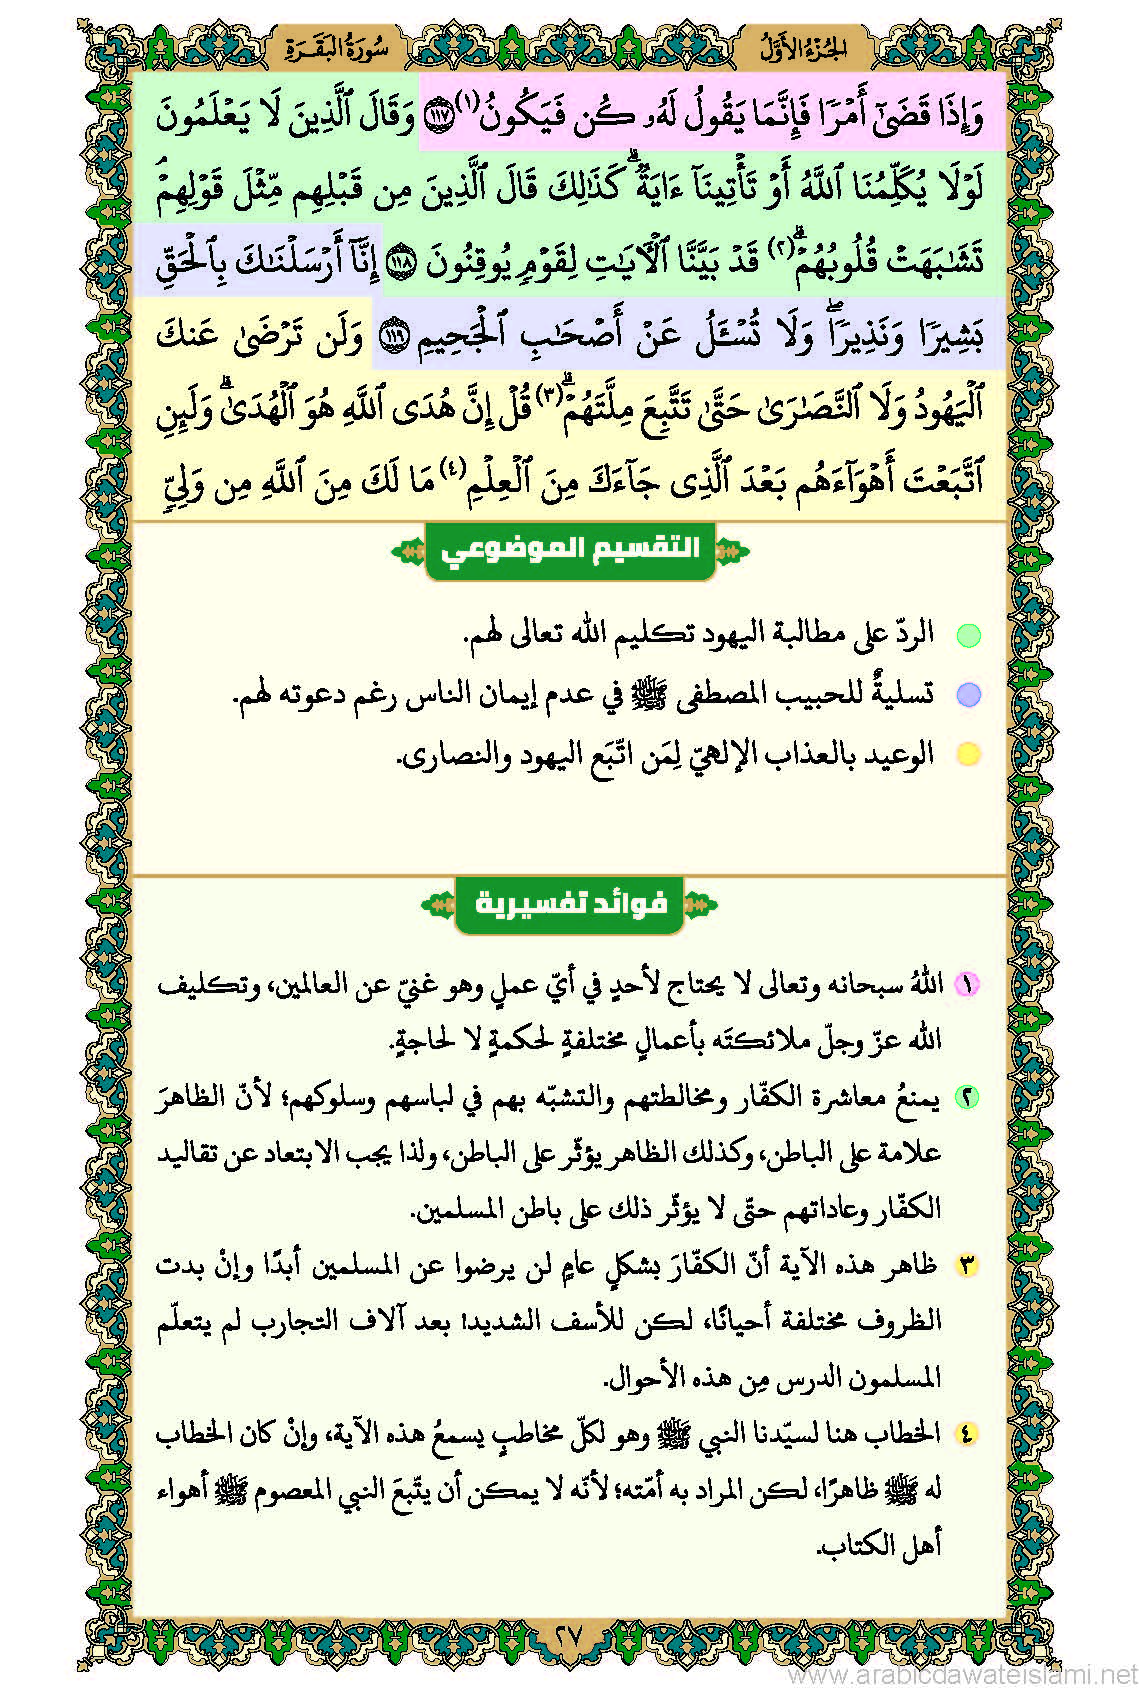 الجُزْءُ الأَوَّلُ
سُورَةُ البَقَرَةِ
وَإِذَا قَضَىٰٓ أَمْرٗا فَإِنَّمَا يَقُولُ لَهُۥ كُن فَيَكُونُ(١) ١١٧ وَقَالَ ٱلَّذِينَ لَا يَعْلَمُونَ
لَوْلَا يُكَلِّمُنَا ٱللَّهُ أَوْ تَأْتِينَآ ءَايَةٞۗ كَذَٰلِكَ قَالَ ٱلَّذِينَ مِن قَبْلِهِم مِّثْلَ قَوْلِهِمْۘ
تَشَٰبَهَتْ قُلُوبُهُمْۗ(٢) قَدْ بَيَّنَّا ٱلْأٓيَٰتِ لِقَوْمٖ يُوقِنُونَ ١١٨ إِنَّآ أَرْسَلْنَٰكَ بِٱلْحَقِّ
بَشِيرٗا وَنَذِيرٗاۖ وَلَا تُسْـَٔلُ عَنْ أَصْحَٰبِ ٱلْجَحِيمِ ١١٩ وَلَن تَرْضَىٰ عَنكَ
ٱلْيَهُودُ وَلَا ٱلنَّصَٰرَىٰ حَتَّىٰ تَتَّبِعَ مِلَّتَهُمْۗ(٣) قُلْ إِنَّ هُدَى ٱللَّهِ هُوَ ٱلْهُدَىٰۗ وَلَئِنِ
ٱتَّبَعْتَ أَهْوَآءَهُم بَعْدَ ٱلَّذِى جَآءَكَ مِنَ ٱلْعِلْمِ(٤) مَا لَكَ مِنَ ٱللَّهِ مِن وَلِيّٖ
التقسيم الموضوعي
الردّ على مطالبة اليهود تكليم الله تعالى لهم.
تسليةٌ للحبيب المصطفى ﷺ في عدم إيمان الناس رغم دعوته لهم.
الوعيد بالعذاب الإلهيّ لِمَن اتّبَع اليهود والنصارى.
فوائد تفسيرية
١ اللهُ سبحانه وتعالى لا يحتاج لأحدٍ في أيّ عملٍ وهو غنيّ عن العالمين، وتكليف
الله عزّ وجلّ ملائكتَه بأعمالٍ مختلفةٍ لحكمةٍ لا لحاجةٍ.
٢ يمنعُ معاشرة الكفّار ومخالطتهم والتشبّه بهم في لباسهم وسلوكهم؛ لأنّ الظاهرَ
علامة على الباطن، وكذلك الظاهر يؤثّر على الباطن، ولذا يجب الابتعاد عن تقاليد
الكفّار وعاداتهم حتّى لا يؤثّر ذلك على باطن المسلمين.
٣ ظاهر هذه الآية أنّ الكفّارَ بشكلٍ عامٍ لن يرضوا عن المسلمين أبدًا وإنْ بدت
الظروف مختلفة أحيانًا، لكن للأسف الشديد! بعد آلاف التجارب لم يتعلّم
المسلمون الدرس مِن هذه الأحوال.
٤ الخطاب هنا لسيّدنا النبي ﷺ وهو لكلّ مخاطبٍ يسمعُ هذه الآية، وإنْ كان الخطاب
له ﷺ ظاهرًا، لكن المراد به أمّته؛ لأنّه لا يمكن أن يتّبعَ النبي المعصوم ﷺ أهواء
أهل الكتاب.
٢٧
www.arabicdawateislami.net